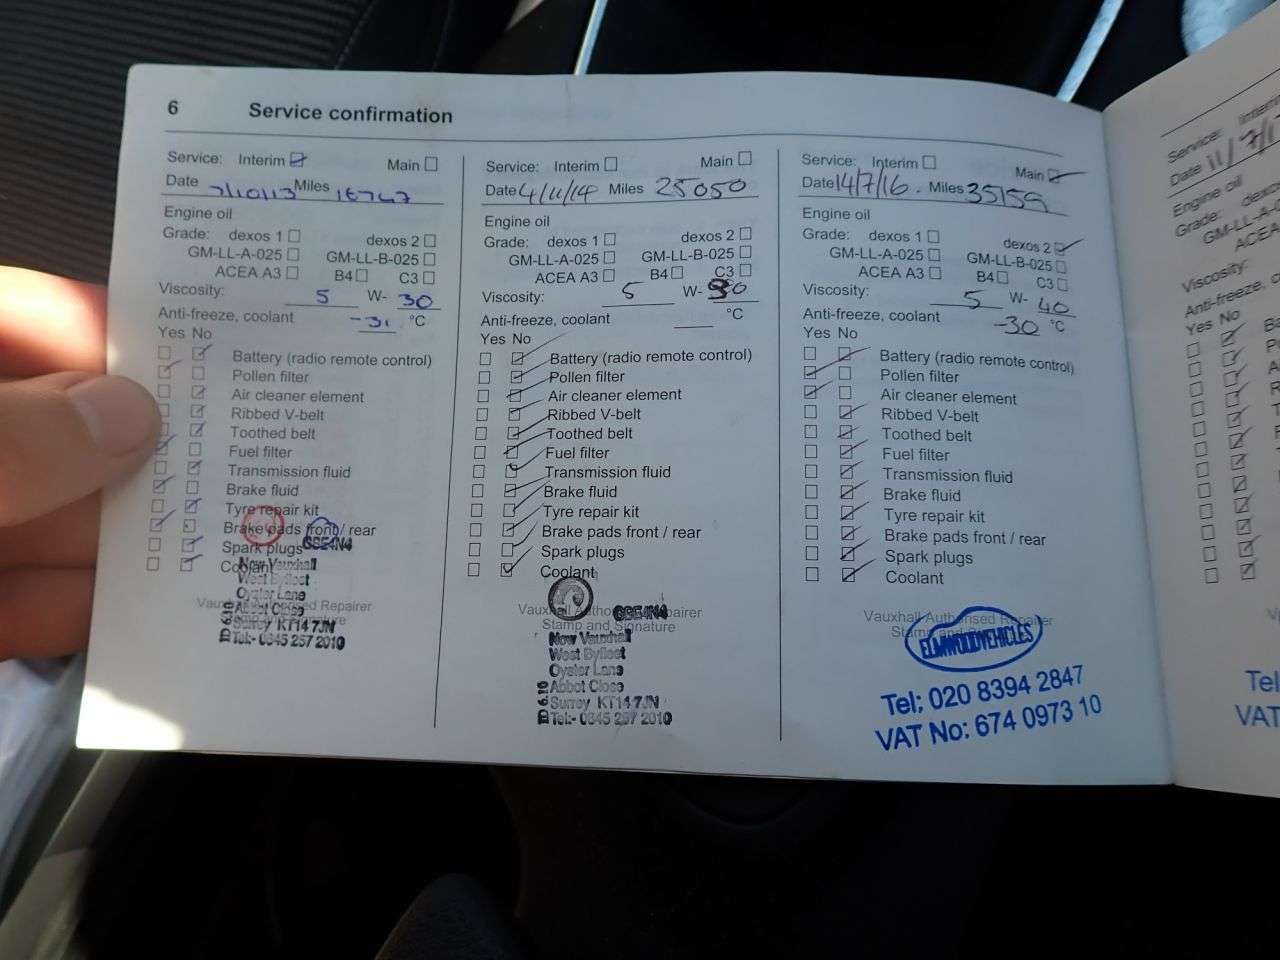 6 Service confirmation
Service: Interim Main
Date 7/10/13 Miles 16747
Engine oil
Grade: dexos 1 dexos 2
GM-LL-A-025 GM-LL-B-025
ACEA A3 B4 C3
Viscosity: 5 W- 30
Anti-freeze, coolant -31 °C
Yes No
Battery (radio remote control)
Pollen filter
Air cleaner element
Ribbed V-belt
Toothed belt
Fuel filter
Transmission fluid
Brake fluid
Tyre repair kit
Brake pads front / rear
Spark plugs
Coolant
Vauxhall Authorised Repairer
Now Vauxhall
West Byfleet
Oyster Lane
Abbot Close
Surrey KT14 7JN
Tel:- 0845 257 2010
Service: Interim Main
Date 4/11/14 Miles 25050
Engine oil
Grade: dexos 1 dexos 2
GM-LL-A-025 GM-LL-B-025
ACEA A3 B4 C3
Viscosity: 5 W- 30
Anti-freeze, coolant °C
Yes No
Battery (radio remote control)
Pollen filter
Air cleaner element
Ribbed V-belt
Toothed belt
Fuel filter
Transmission fluid
Brake fluid
Tyre repair kit
Brake pads front / rear
Spark plugs
Coolant
Vauxhall Authorised Repairer
Stamp and Signature
Now Vauxhall
West Byfleet
Oyster Lane
Abbot Close
Surrey KT14 7JN
Tel:- 0845 257 2010
Service: Interim Main
Date 14/7/16. Miles 35159
Engine oil
Grade: dexos 1 dexos 2
GM-LL-A-025 GM-LL-B-025
ACEA A3 B4 C3
Viscosity: 5 W- 40
Anti-freeze, coolant -30 °C
Yes No
Battery (radio remote control)
Pollen filter
Air cleaner element
Ribbed V-belt
Toothed belt
Fuel filter
Transmission fluid
Brake fluid
Tyre repair kit
Brake pads front / rear
Spark plugs
Coolant
Vauxhall Authorised Repairer
ELMWOOD VEHICLES
Tel; 020 8394 2847
VAT No: 674 0973 10
Service:
Date 11/7/17
Engine oil
Grade:
GM-LL-A-025
ACEA
Viscosity:
Anti-freeze,
Yes No
Tel
VAT